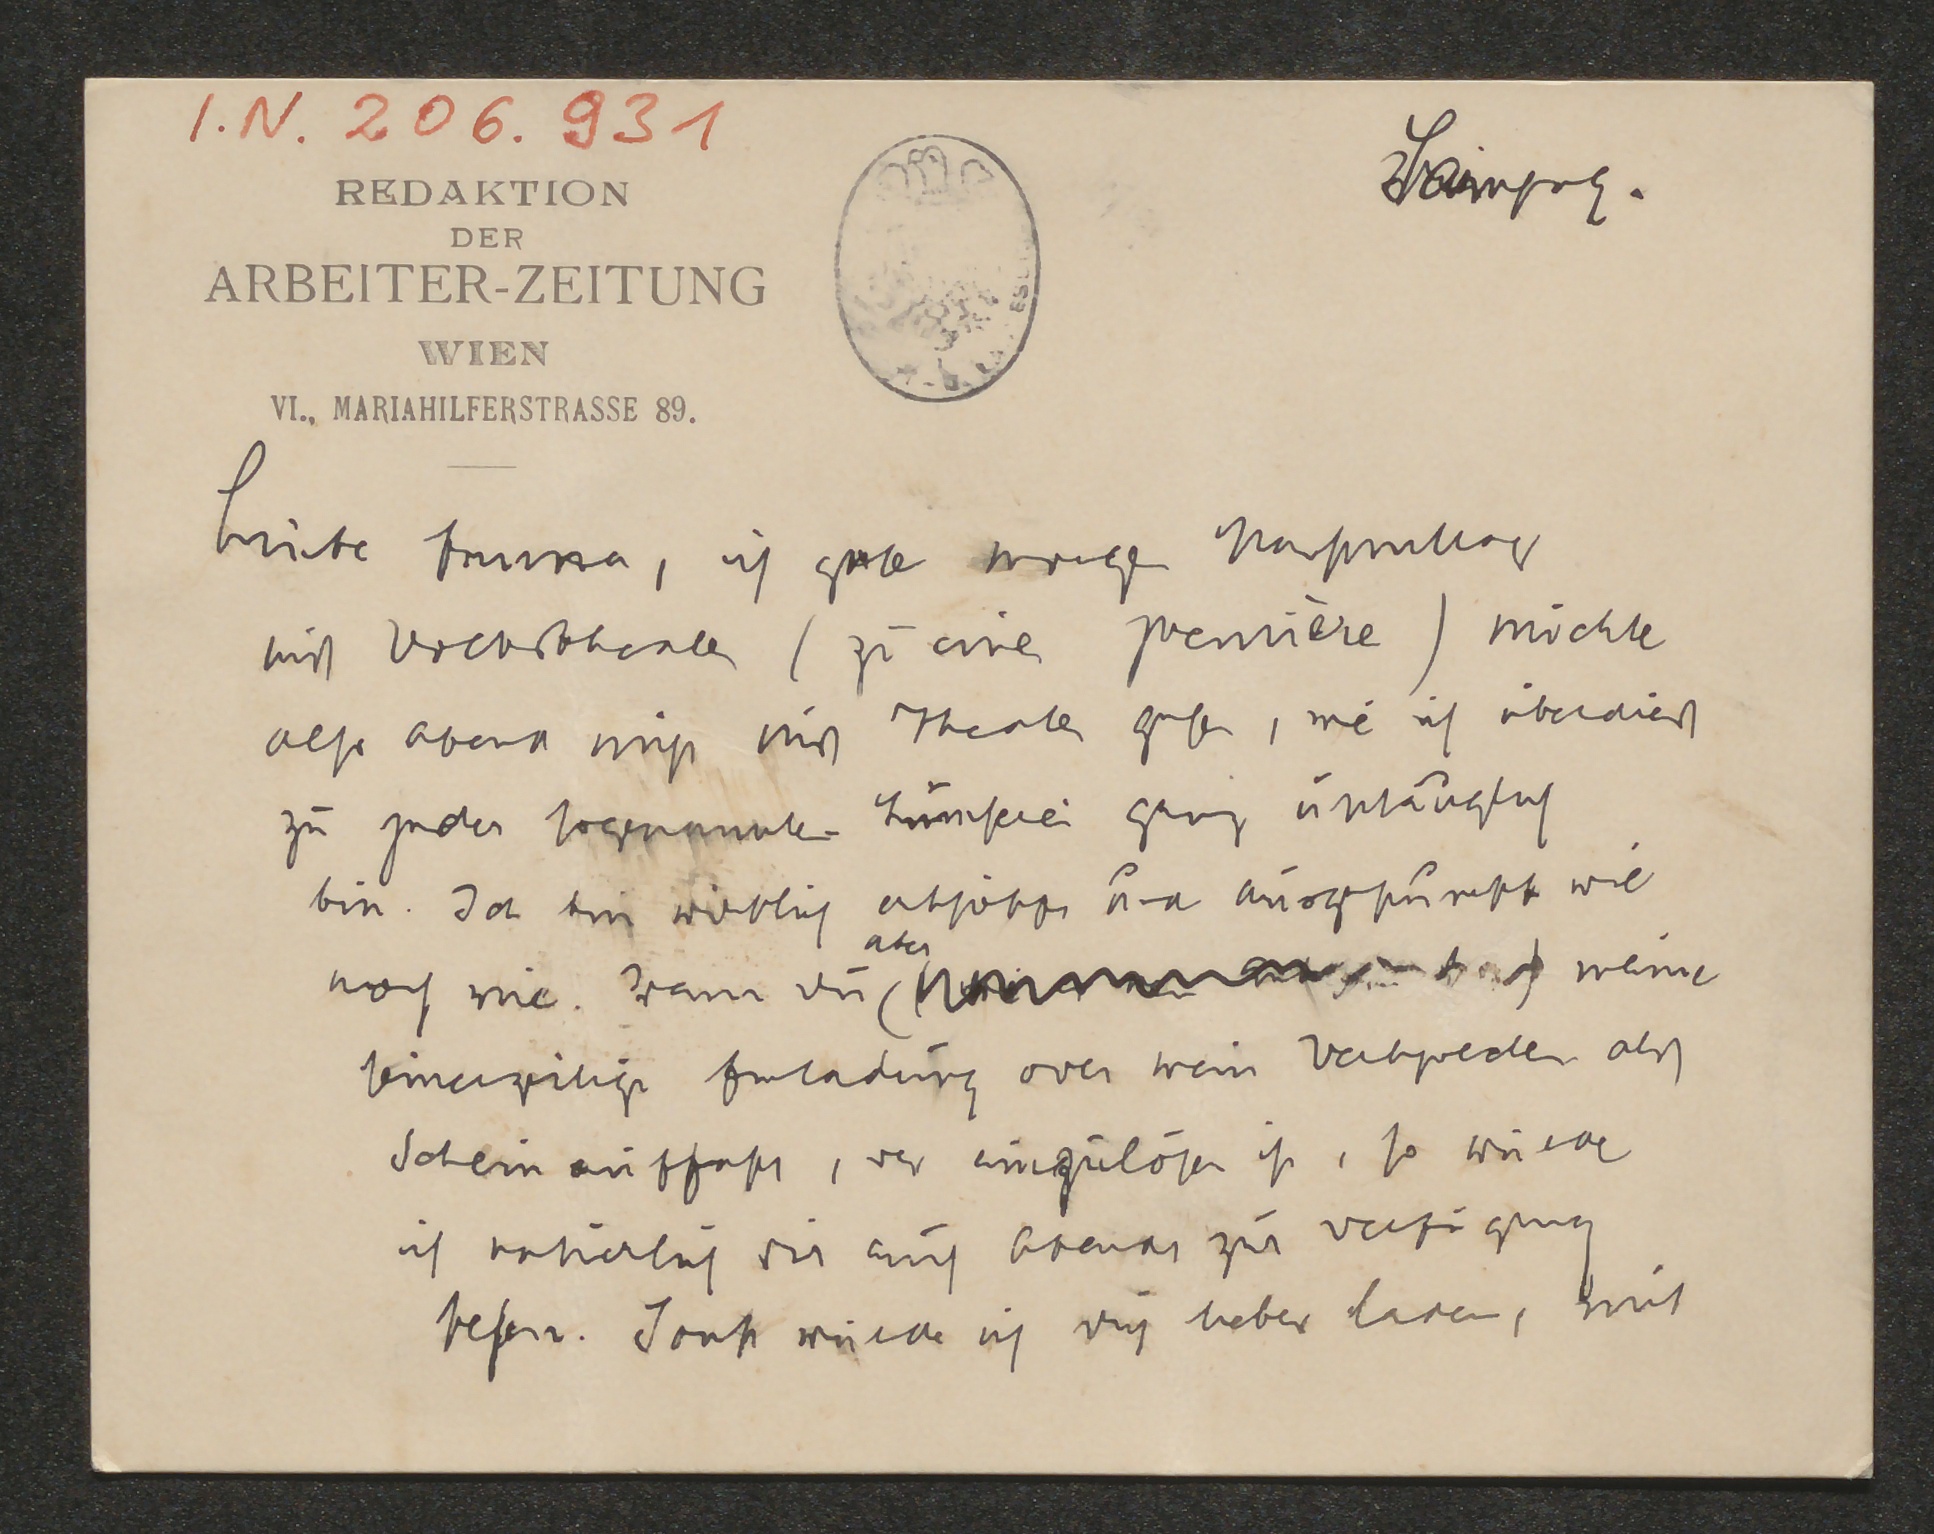 I.N. 206.931
REDAKTION
DER
ARBEITER-ZEITUNG
WIEN
VI., MARIAHILFERSTRASSE 89.
Samstag.
Liebe Emma, ich gehe morgen Nachmittag
ins Volkstheater (zu einer première) möchte
also abend nicht ins Theater gehen, wie ich überdies
zu jeder sogenannten ganz untauglich
bin. Ich bin wirklich erschöpft und ausgepumpt wie
noch nie. Wenn du aber meine
seinerzeitige Einladung oder mein Versprechen als
Schein auffaßt, der einzulösen ist, so würde
ich natürlich dir auch abends zur Verfügung
stehen. Sonst würde ich dich lieber laden, mit